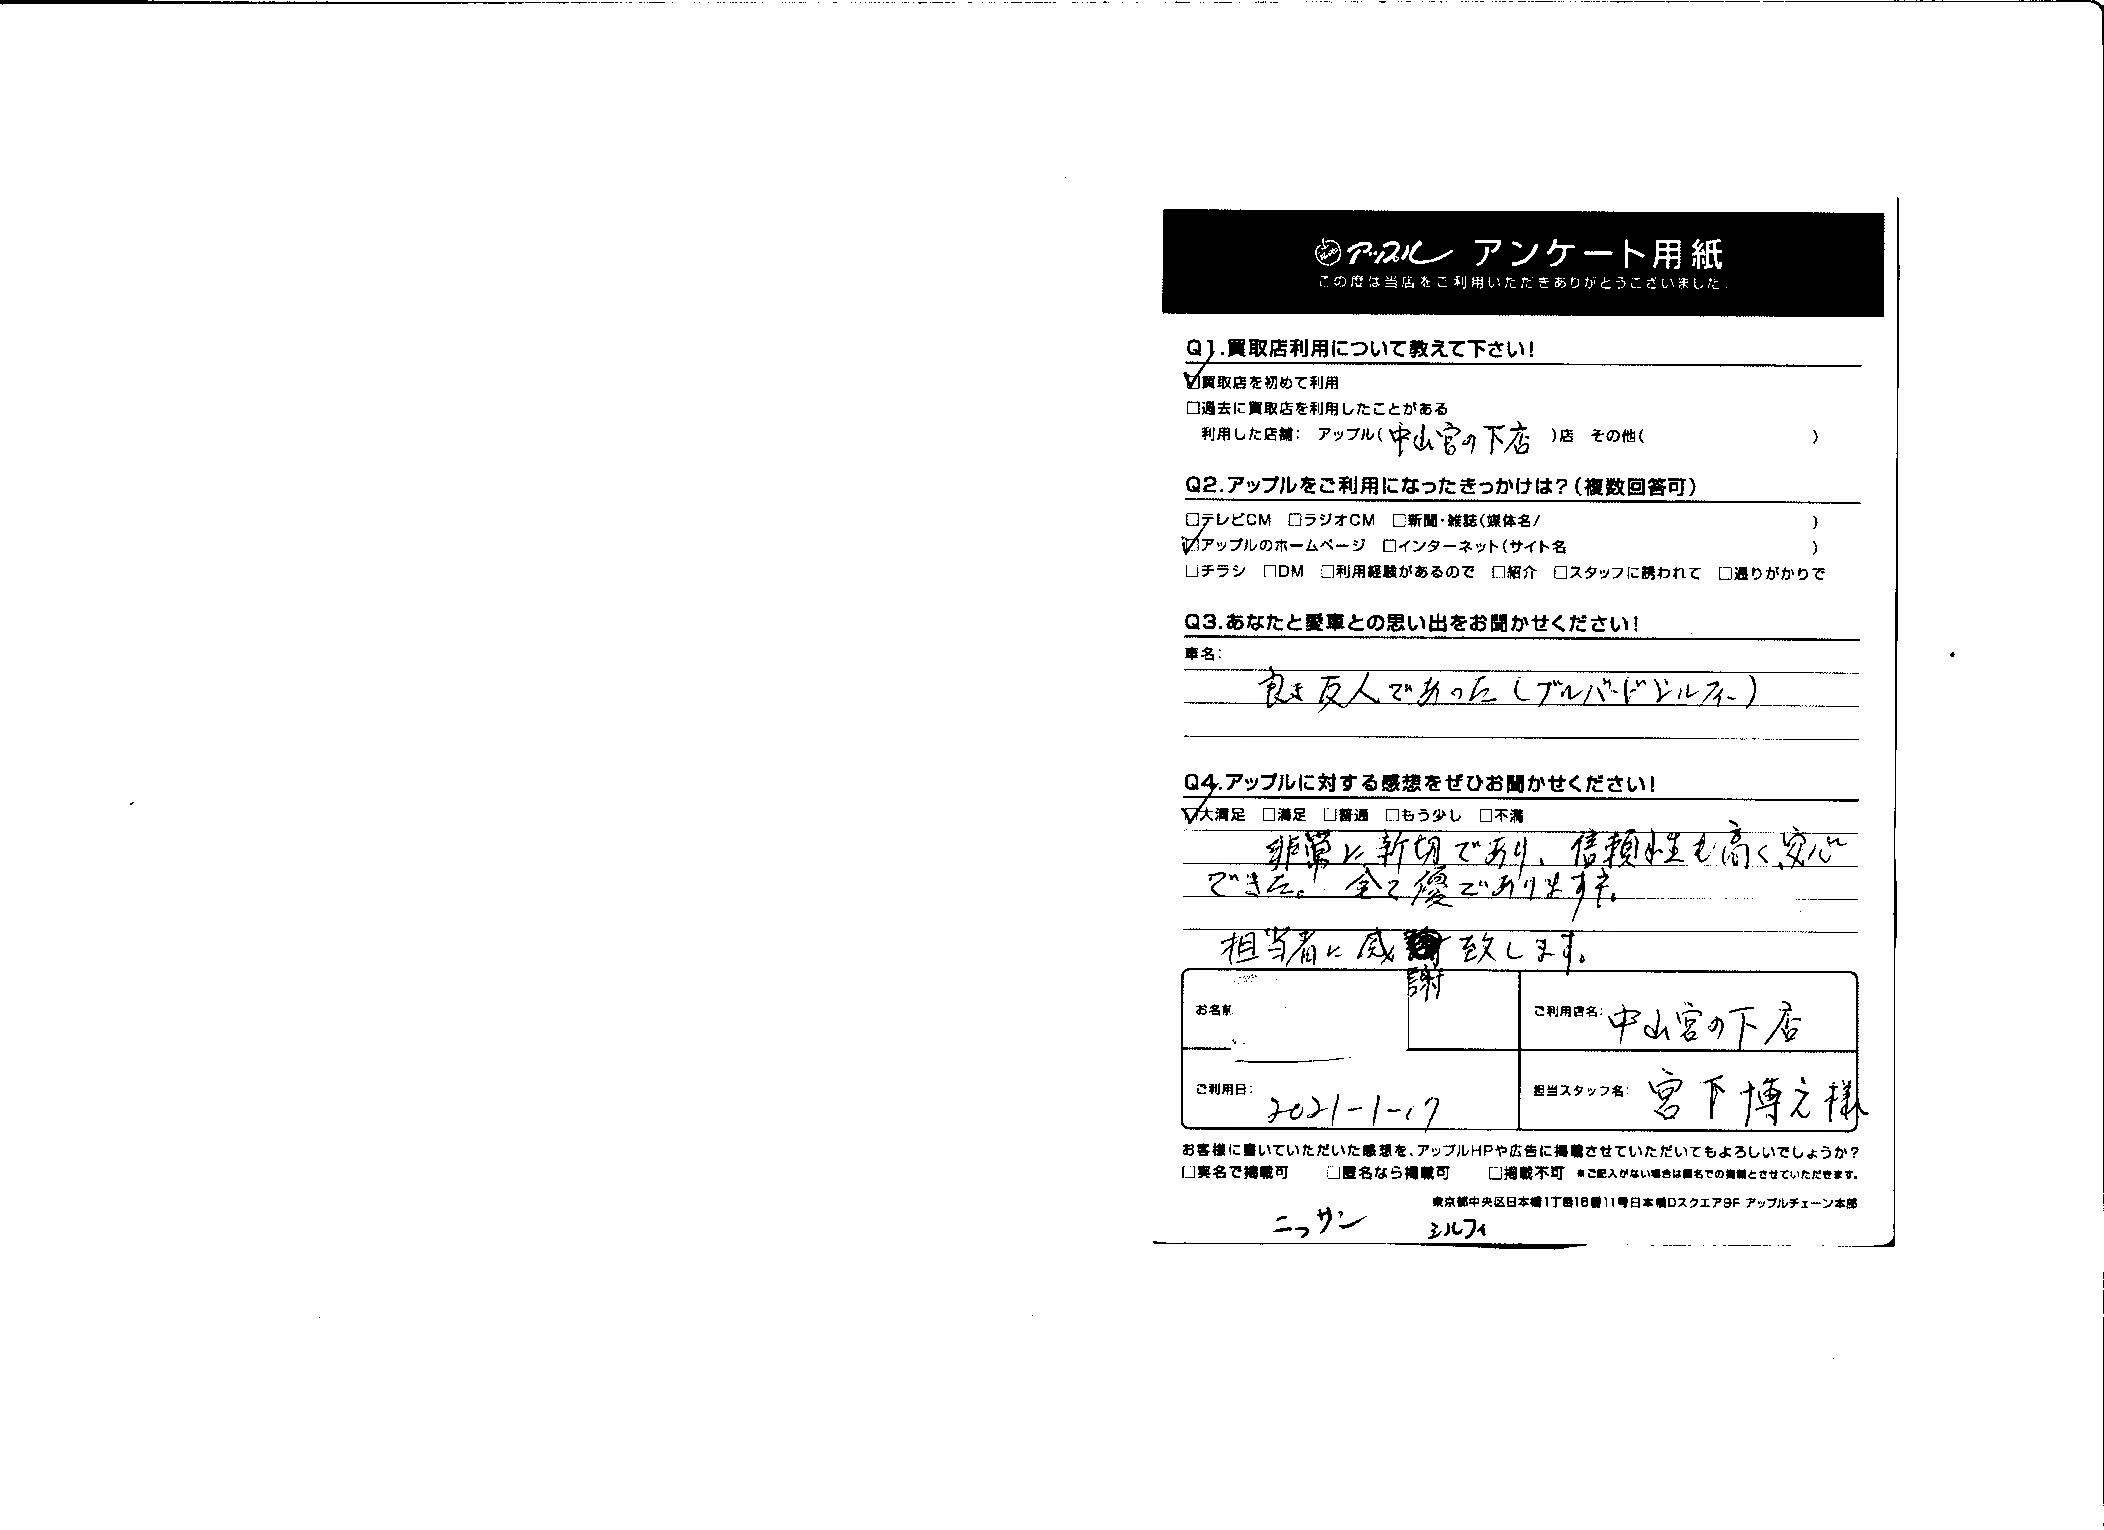 アップル アンケート用紙
この度は当店をご利用いただきありがとうございました。
Q1.買取店利用について教えて下さい!
☑買取店を初めて利用
□過去に買取店を利用したことがある
利用した店舗: アップル(中山宮の下店)店 その他( )
Q2.アップルをご利用になったきっかけは?(複数回答可)
□テレビCM □ラジオCM □新聞・雑誌(媒体名/ )
☑アップルのホームページ □インターネット(サイト名 )
□チラシ □DM □利用経験があるので □紹介 □スタッフに誘われて □通りがかりで
Q3.あなたと愛車との思い出をお聞かせください!
車名:
良き友人であった(ブルバードシルフィー)
Q4.アップルに対する感想をぜひお聞かせください!
☑大満足 □満足 □普通 □もう少し □不満
非常に新切であり、信頼性も高く安心
できた。全て優であります。
担当者に感謝致します。
お名前
ご利用店名: 中山宮の下店
ご利用日: 2021-1-17
担当スタッフ名: 宮下博之様
お客様に書いていただいた感想を、アップルHPや広告に掲載させていただいてもよろしいでしょうか?
□実名で掲載可 □匿名なら掲載可 □掲載不可 ※ご記入がない場合は匿名での掲載とさせていただきます。
東京都中央区日本橋1丁目16番11号日本橋Dスクエア9F アップルチェーン本部
ニッサン シルフィ